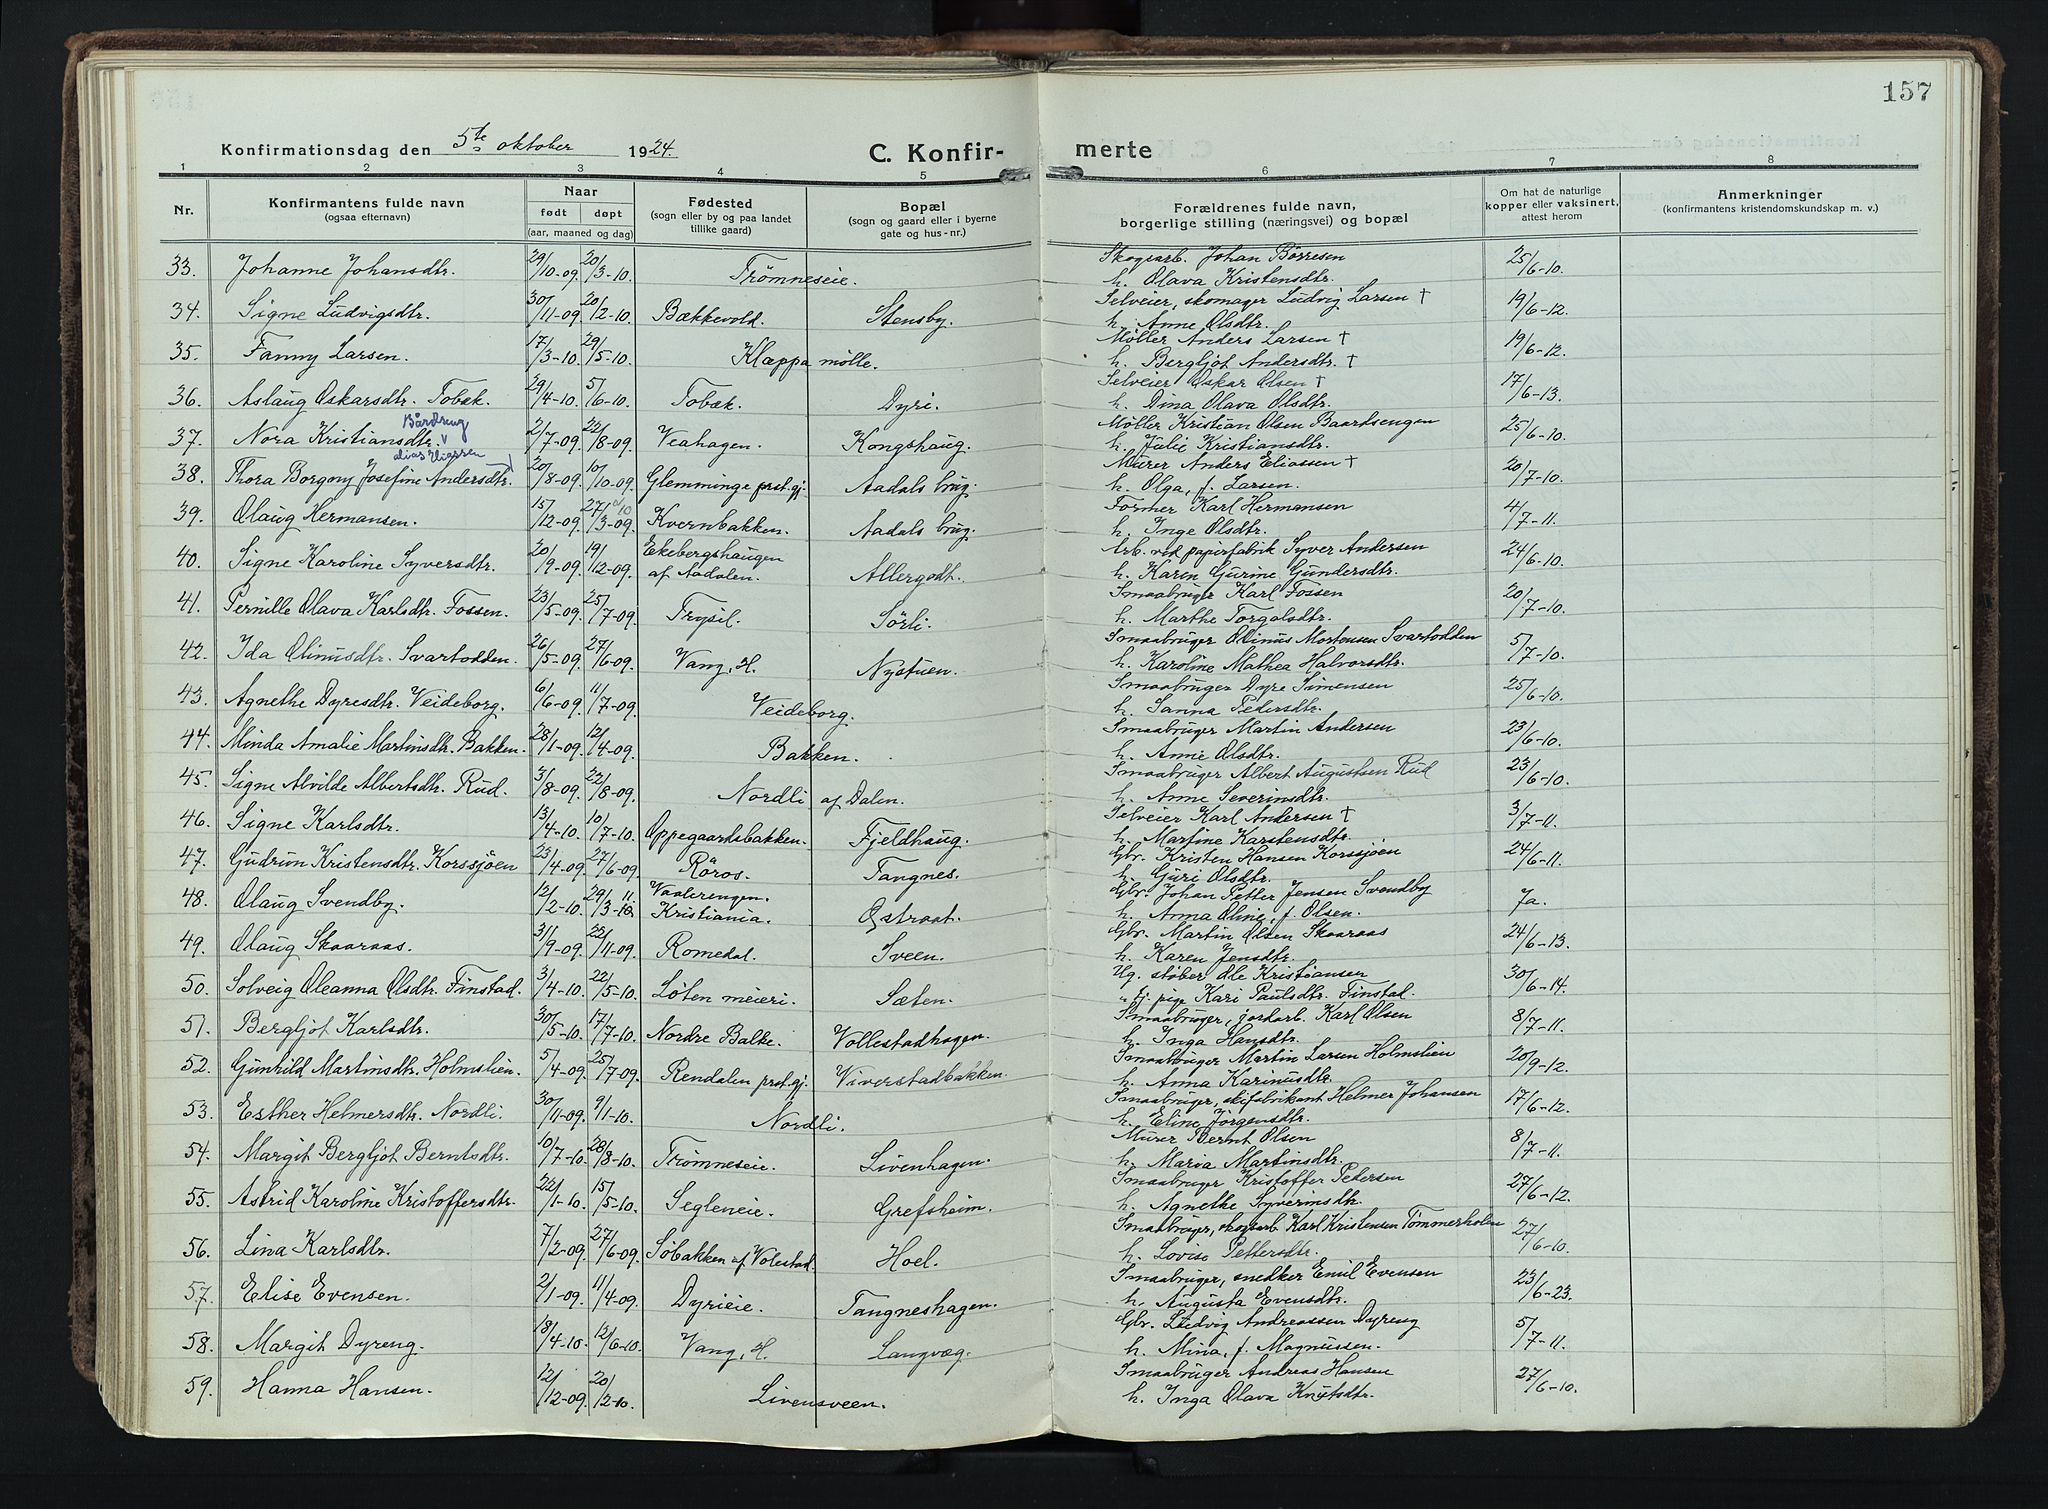 157
Konfirmationsdag den 5te oktober 1924.
C. Konfirmerte
1 2 3 4 5 6 7 8
Nr.
Konfirmantens fulde navn (ogsaa efternavn)
Naar født døpt (aar, maaned og dag)
Fødested (sogn eller by og paa landet tillike gaard)
Bopæl (sogn og gaard eller i byerne gate og hus-nr.)
Forældrenes fulde navn, borgerlige stilling (næringsvei) og bopæl
Om hat de naturlige kopper eller vaksinert, attest herom
Anmerkninger (konfirmantens kristendomskundskap m. v.)
33. Johanne Johansdtr. 29/10-09. 20/3-10. Trømneseie. Skogsarb. Johan Børresen 25/6-10.
h. Olava Kristensdtr.
34. Signe Ludvigsdtr. 30/11-09. 20/2-10. Bækkevold. Stensby. Selveier, skomager Ludvig Larsen † 19/6-12.
h. Anne Olsdtr.
35. Fanny Larsen. 17/3-10. 29/5-10. Klæppa mølle. Møller Anders Larsen † 19/6-12.
h. Bergljot Andersdtr. †
36. Aslaug Oskarsdtr. Tobæk. 29/4-10. 5/6-10. Tobæk. Dyri. Selveier Oskar Olsen † 17/6-13.
h. Dina Olava Olsdtr.
Bårdseng
37. Nora Kristiansdtr. 2/7-09. 22/8-09. Veahagen. Kongshaug. Møller Kristian Olsen Baardsengen 25/6-10.
h. Julie Kristiansdtr.
alias Eliassen
38. Thora Borgny Josefine Andersdtr. 20/8-09. 10/10-09. Glemminge prst.gj. Aadals brug. Murer Anders Eliassen † 20/7-10.
h. Olga, f. Larsen.
39. Olaug Hermansen. 15/12-09. 27/3-09. Kvernbakken. Aadals brug. Former Karl Hermansen 4/7-11.
h. Inge Olsdtr.
40. Signe Karoline Syversdtr. 20/9-09. 19/12-09. Ekebergshaugen af Aadalen. Allergodt. Arb. ved papirfabrik Syver Andersen 24/6-10.
h. Karen Gurine Gundersdtr.
41. Pernille Olava Karlsdtr. Fossen. 23/5-09. 25/7-09. Trysil. Sørli. Smaabruger Karl Fossen 20/7-10.
h. Marthe Torgalsdtr.
42. Ida Olinusdtr. Svartodden. 26/5-09. 27/6-09. Vang, H. Nystuen. Smaabruger Olinus Mortensen Svartodden 5/7-10.
h. Karoline Mathea Halvorsdtr.
43. Agnethe Dyresdtr. Veideborg. 6/6-09. 11/7-09. Veideborg. Smaabruger Dyre Simensen 25/6-10.
h. Sanna Pedersdtr.
44. Minda Amalie Martinsdtr. Bakken. 28/1-09. 12/4-09. Bakken. Smaabruger Martin Andersen 23/6-10.
h. Anne Olsdtr.
45. Signe Alvilde Albertsdtr. Rud. 3/8-09. 22/8-09. Nordli af Dalen. Smaabruger Albert Augustsen Rud 23/6-10.
h. Anne Severinsdtr.
46. Signe Karlsdtr. 13/4-10. 10/7-10. Oppegaardsbakken. Fjeldhaug. Selveier Karl Andersen † 3/7-11.
h. Martine Karstensdtr.
47. Gudrun Kristensdtr. Korssjøen 23/4-09. 27/6-09 Røros. Tangnes. Gbr. Kristen Hansen Korssjøen 24/6-11.
h. Guri Olsdtr.
48. Olaug Svendby. 12/2-10. 29/3-10. 11. Vaalerengen. Kristiania. Østraat. Gbr. Johan Petter Jensen Svendby Ja.
h. Anna Oline, f. Olsen.
49. Olaug Skaaraas. 3/9-09. 22/11-09. Romedal. Sveen. Gbr. Martin Olsen Skaaraas 24/6-13.
h. Karen Jensdtr.
50. Solveig Oleanna Olsdtr. Finstad. 3/4-10. 22/5-10. Løten meieri. Sæten. Ug. støber Ole Kristiansen 30/6-14.
" tj. pige Kari Paulsdtr. Finstad.
51. Bergljot Karlsdtr. 30/5-10. 17/7-10. Nordre Balke. Vollestadhagen. Smaabruger, jordarb. Karl Olsen 8/7-11.
h. Inga Hansdtr.
52. Gunhild Martinsdtr. Holmslien. 5/4-09. 25/7-09. Rendalen prst.gj. Viverstadbakken. Smaabruger Martin Larsen Holmslien 20/9-12.
h. Anna Karinusdtr.
53. Esther Helmersdtr. Nordli. 30/11-09. 9/1-10. Nordli. Smaabruger, skifabrikant Helmer Johansen 17/6-12.
h. Eline Jørgensdtr.
54. Margit Bergljot Berntsdtr. 10/7-10. 28/8-10. Trømneseie. Livenhagen. Murer Bernt Olsen 8/7-11.
h. Maria Martinsdtr.
55. Astrid Karoline Kristoffersdtr. 22/1-10. 15/5-10. Segleneie. Grefsheim. Smaabruger Kristoffer Pedersen 27/6-12.
h. Agnethe Syverinsdtr.
56. Lina Karlsdtr. 7/2-09. 27/6-09. Søbakken af Volestad. Hoel. Smaabruger, skogsarb. Karl Kristensen Tømmerholen 27/6-10.
h. Lovise Pettersdtr.
57. Elise Evensen. 2/1-09. 11/4-09. Dyrieie. Tangneshagen. Smaabruger, snedker Emil Evensen 23/6-23.
h. Augusta Evensdtr.
58. Margit Dyreng. 18/4-10. 12/6-10. Vang, H. Langvæg. Gbr. Ludvig Andreassen Dyreng 5/7-11.
h. Mina, f. Magnussen.
59. Hanna Hansen. 12/12-09. 20/2-10. Livensveen. Smaabruger Andreas Hansen 27/6-10.
h. Inga Olava Knutsdtr.